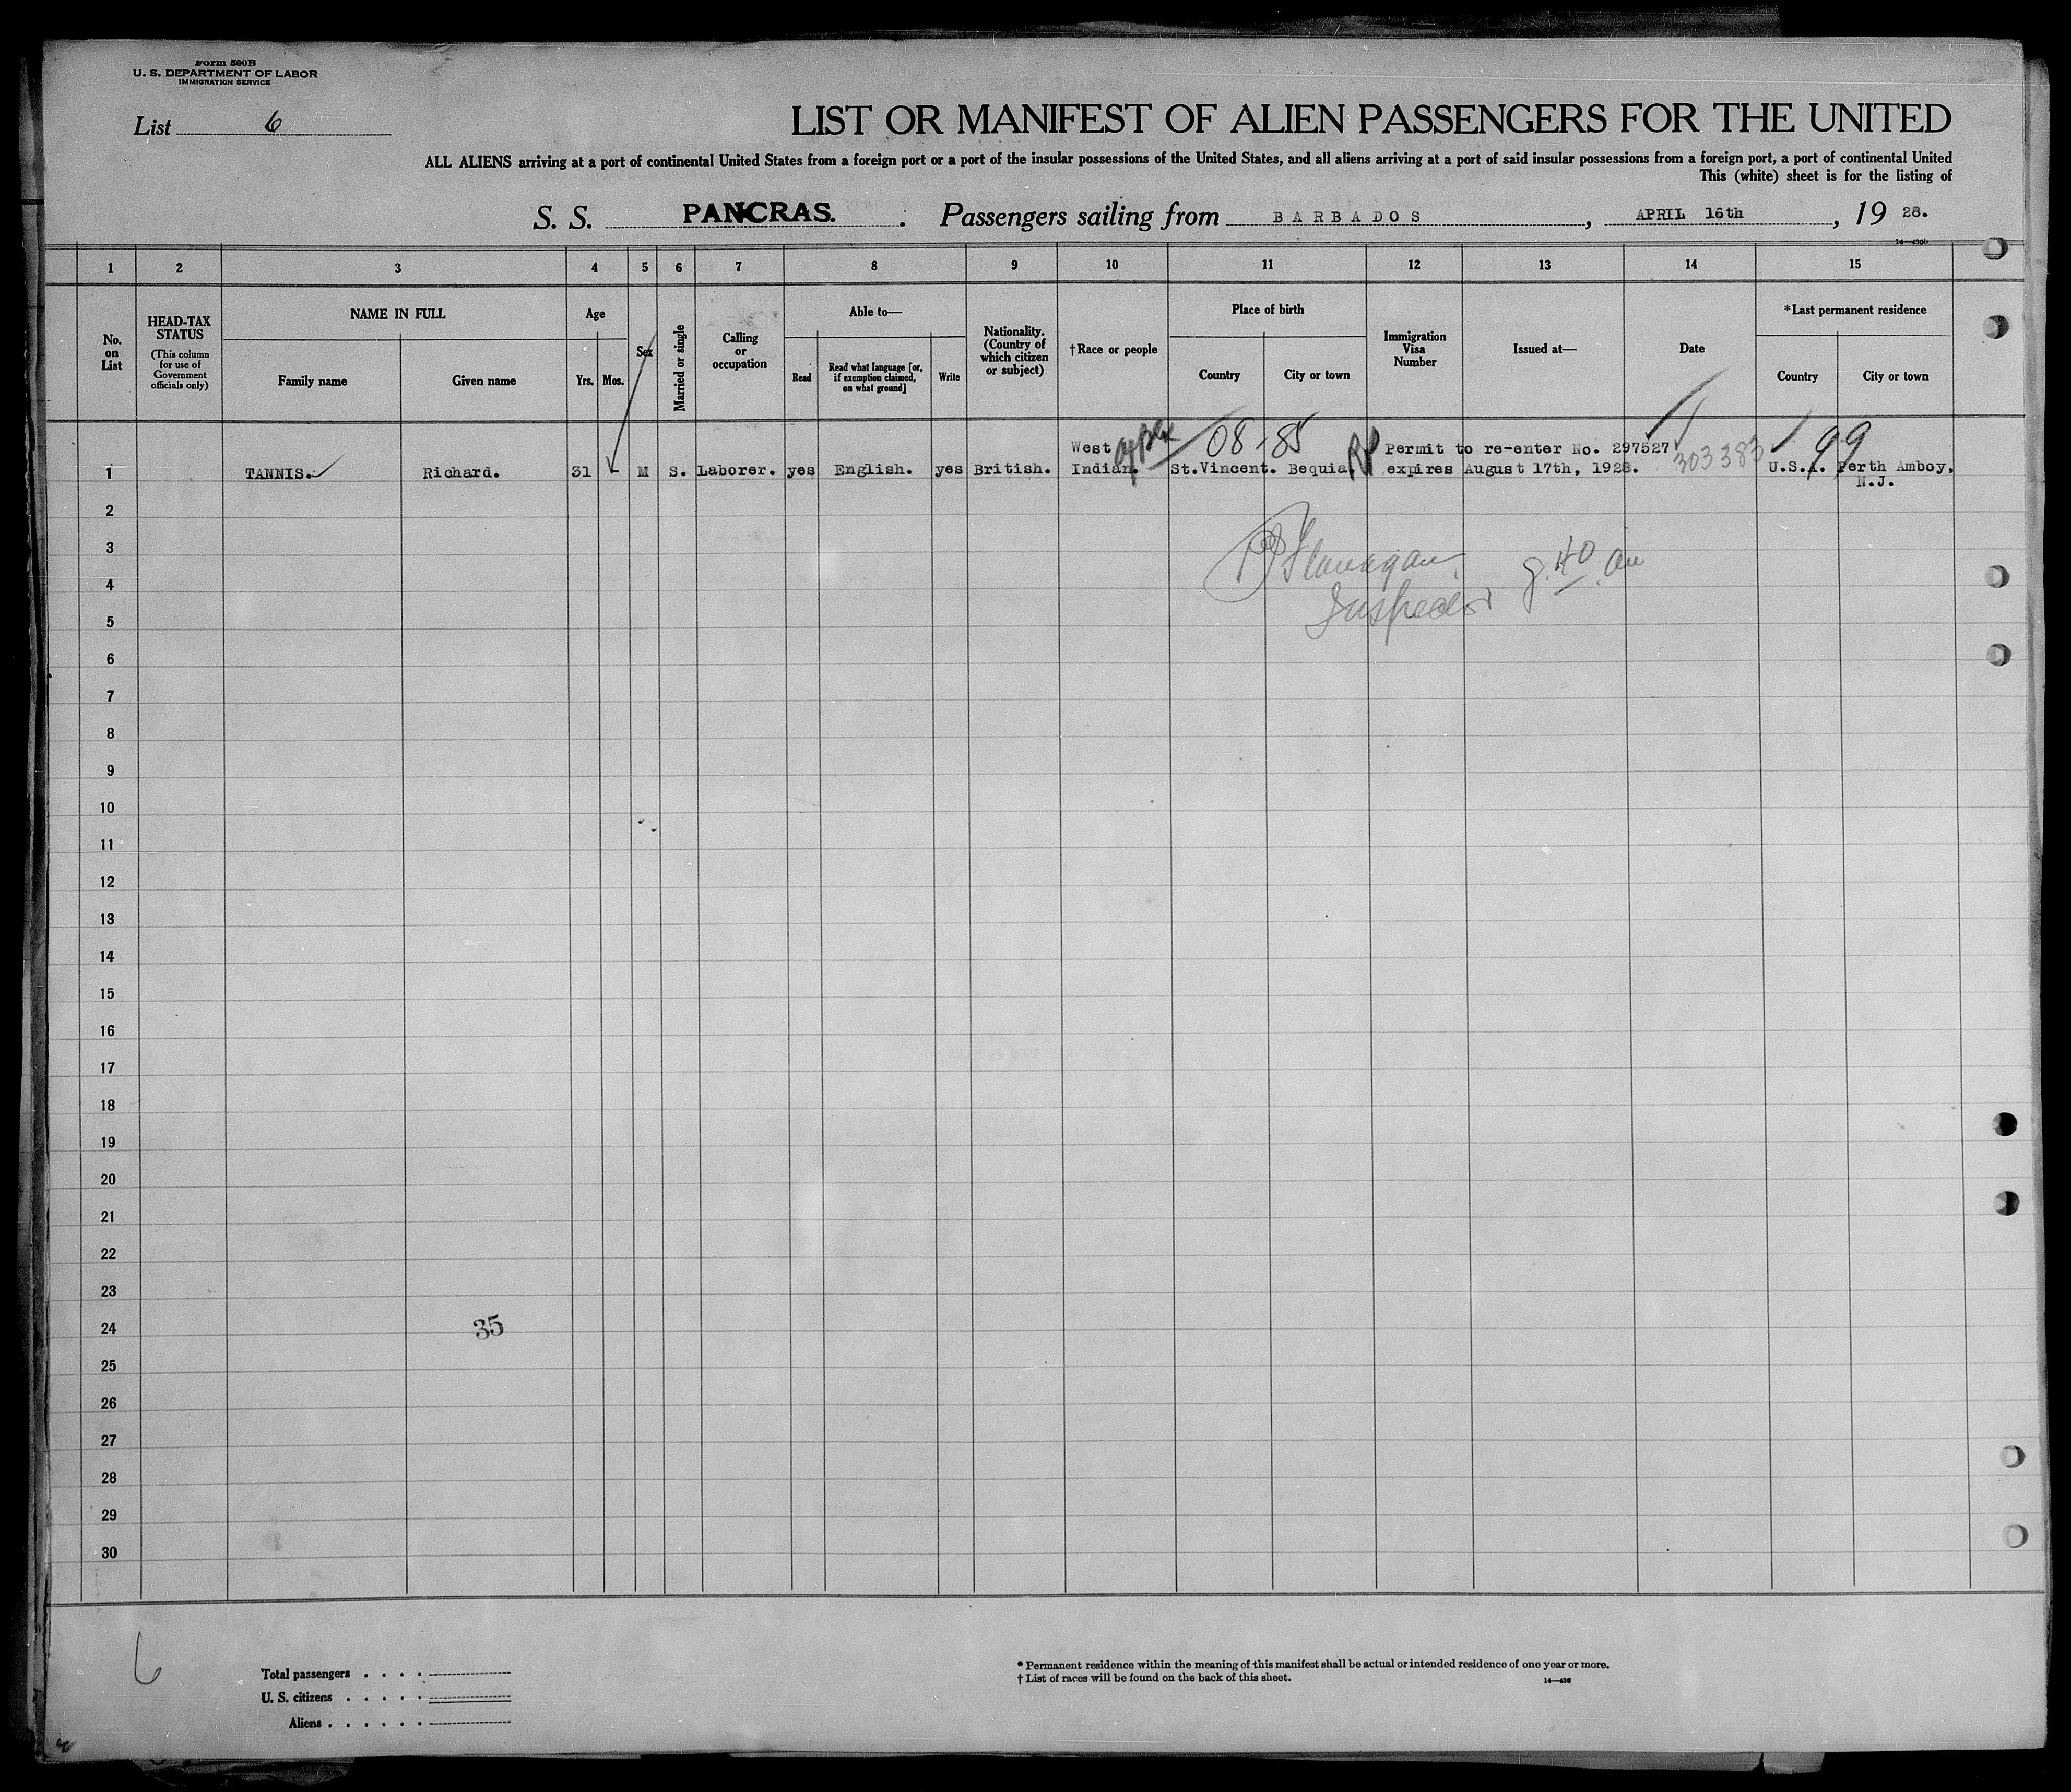 Form 500B
U. S. DEPARTMENT OF LABOR
IMMIGRATION SERVICE
List 6
LIST OR MANIFEST OF ALIEN PASSENGERS FOR THE UNITED
ALL ALIENS arriving at a port of continental United States from a foreign port or a port of the insular possessions of the United States, and all aliens arriving at a port of said insular possessions from a foreign port, a port of continental United
This (white) sheet is for the listing of
S. S. PANCRAS. Passengers sailing from BARBADOS, APRIL 16th, 19 28.
1 2 3 4 5 6 7 8 9 10 11 12 13 14 15
No. on List
HEAD-TAX STATUS
(This column for use of Government officials only)
NAME IN FULL
Family name
Given name
Age
Yrs.
Mos.
Sex
Married or single
Calling or occupation
Able to—
Read
Read what language [or, if exemption claimed, on what ground]
Write
Nationality. (Country of which citizen or subject)
†Race or people
Place of birth
Country
City or town
Immigration Visa Number
Issued at—
Date
*Last permanent residence
Country
City or town
08-85
99
West Permit to re-enter No. 297527
303383
1 TANNIS. Richard. 31 M S. Laborer. yes English. yes British. Indian. St.Vincent. Bequia RP expires August 17th, 1928. U.S.A. Perth Amboy,
N.J.
2
3
Flanagan
4
Inspector
5
6
7
8
9
10
11
12
13
14
15
16
17
18
19
20
21
22
23
24
35
25
26
27
28
29
30
6
Total passengers
U. S. citizens
Aliens
* Permanent residence within the meaning of this manifest shall be actual or intended residence of one year or more.
† List of races will be found on the back of this sheet.